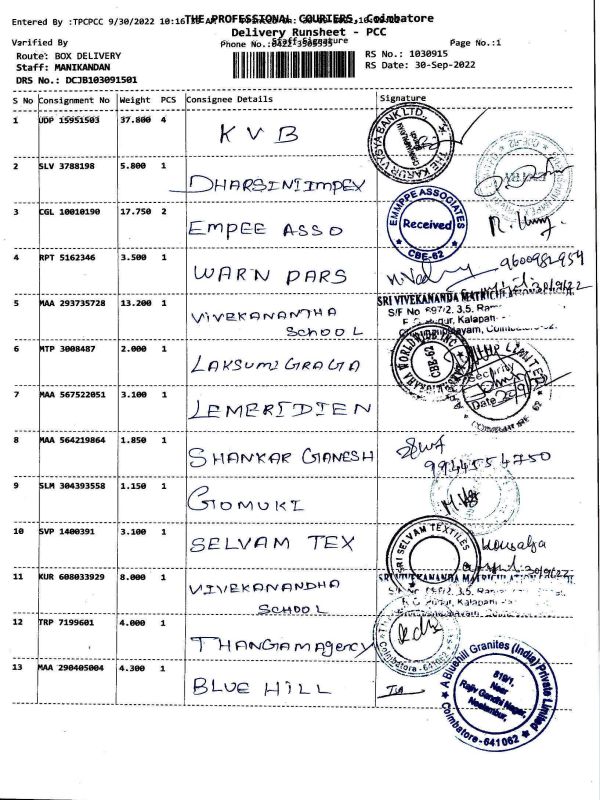 Entered By :TPCPCC 9/30/2022 10:16
THE PROFESSIONAL COURIERS, Coimbatore
Delivery Runsheet - PCC
Varified By
Staff Signature
Phone No.:0422-3505555
Page No.:1
Route: BOX DELIVERY
RS No.: 1030915
Staff: MANIKANDAN
RS Date: 30-Sep-2022
DRS No.: DCJB103091501
S No Consignment No Weight PCS Consignee Details Signature
1 UDP 15951503 37.800 4 KVB
THE KARUR VYSYA BANK LTD.,
2 SLV 3788198 5.800 1 DHARSINI IMPEX
3 CGL 10010190 17.750 2 EMPEE ASSO
EMMPPE ASSOCIATES
Received
CBE-62
4 RPT 5162346 3.500 1 WARN PARS
9600982954
5 MAA 293735728 13.200 1 VIVEKANANTHA SCHOOL
30/9/22
SRI VIVEKANANDA MATRICULATION
S/F No 697/2, 3,5,
6 MTP 3008487 2.000 1 LAKSUMIGRAGA
WORLDWIDE INC
CBE-62
7 MAA 567522051 3.100 1 LEMERIDIEN
LIMITED
Security
Date
8 MAA 564219864 1.850 1 SHANKAR GANESH
9944154750
9 SLM 304393558 1.150 1 GOMUKI
10 SVP 1400391 3.100 1 SELVAM TEX
SRI SELVAM TEXTILES
Kousalya
11 KUR 608033929 8.000 1 VIVEKANANDHA SCHOOL
30/9/22
SRI VIVEKANANDA MATRICULATION
12 TRP 7199601 4.000 1 THANGAMAgency
Coimbatore - 641062
13 MAA 290405004 4.300 1 BLUE HILL
A Bluehill Granites (India) Private Limited
819/1,
Near
Rajiv Gandhi Nagar,
Neelambur,
Coimbatore-641062